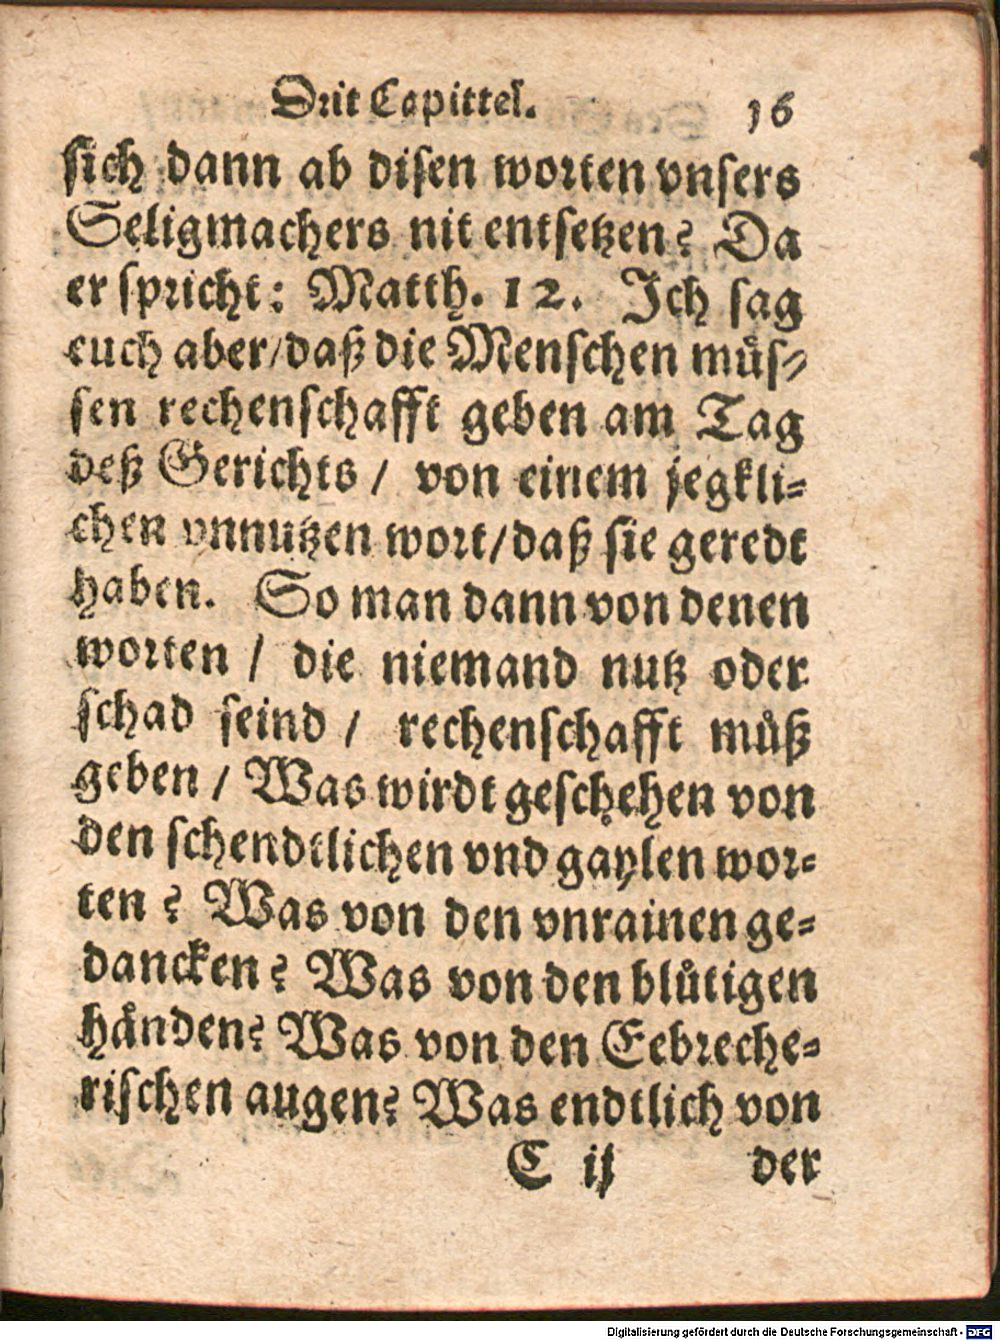 Drit Capittel. 16
sich dann ab disen worten vnsers
Seligmachers nit entsetzen? Da
er spricht: Matth. 12. Ich sag
euch aber/daß die Menschen muͤs-
sen rechenschafft geben am Tag
deß Gerichts / von einem jegkli-
chen vnnutzen wort/daß sie geredt
haben. So man dann von denen
worten / die niemand nutz oder
schad seind / rechenschafft muͦß
geben / Was wirdt geschehen von
den schendtlichen vnd gaylen wor-
ten? Was von den vnrainen ge-
dancken? Was von den bluͤtigen
haͤnden? Was von den Eebreche-
rischen augen? Was endtlich von
C ij der
Digitalisierung gefördert durch die Deutsche Forschungsgemeinschaft - DFG